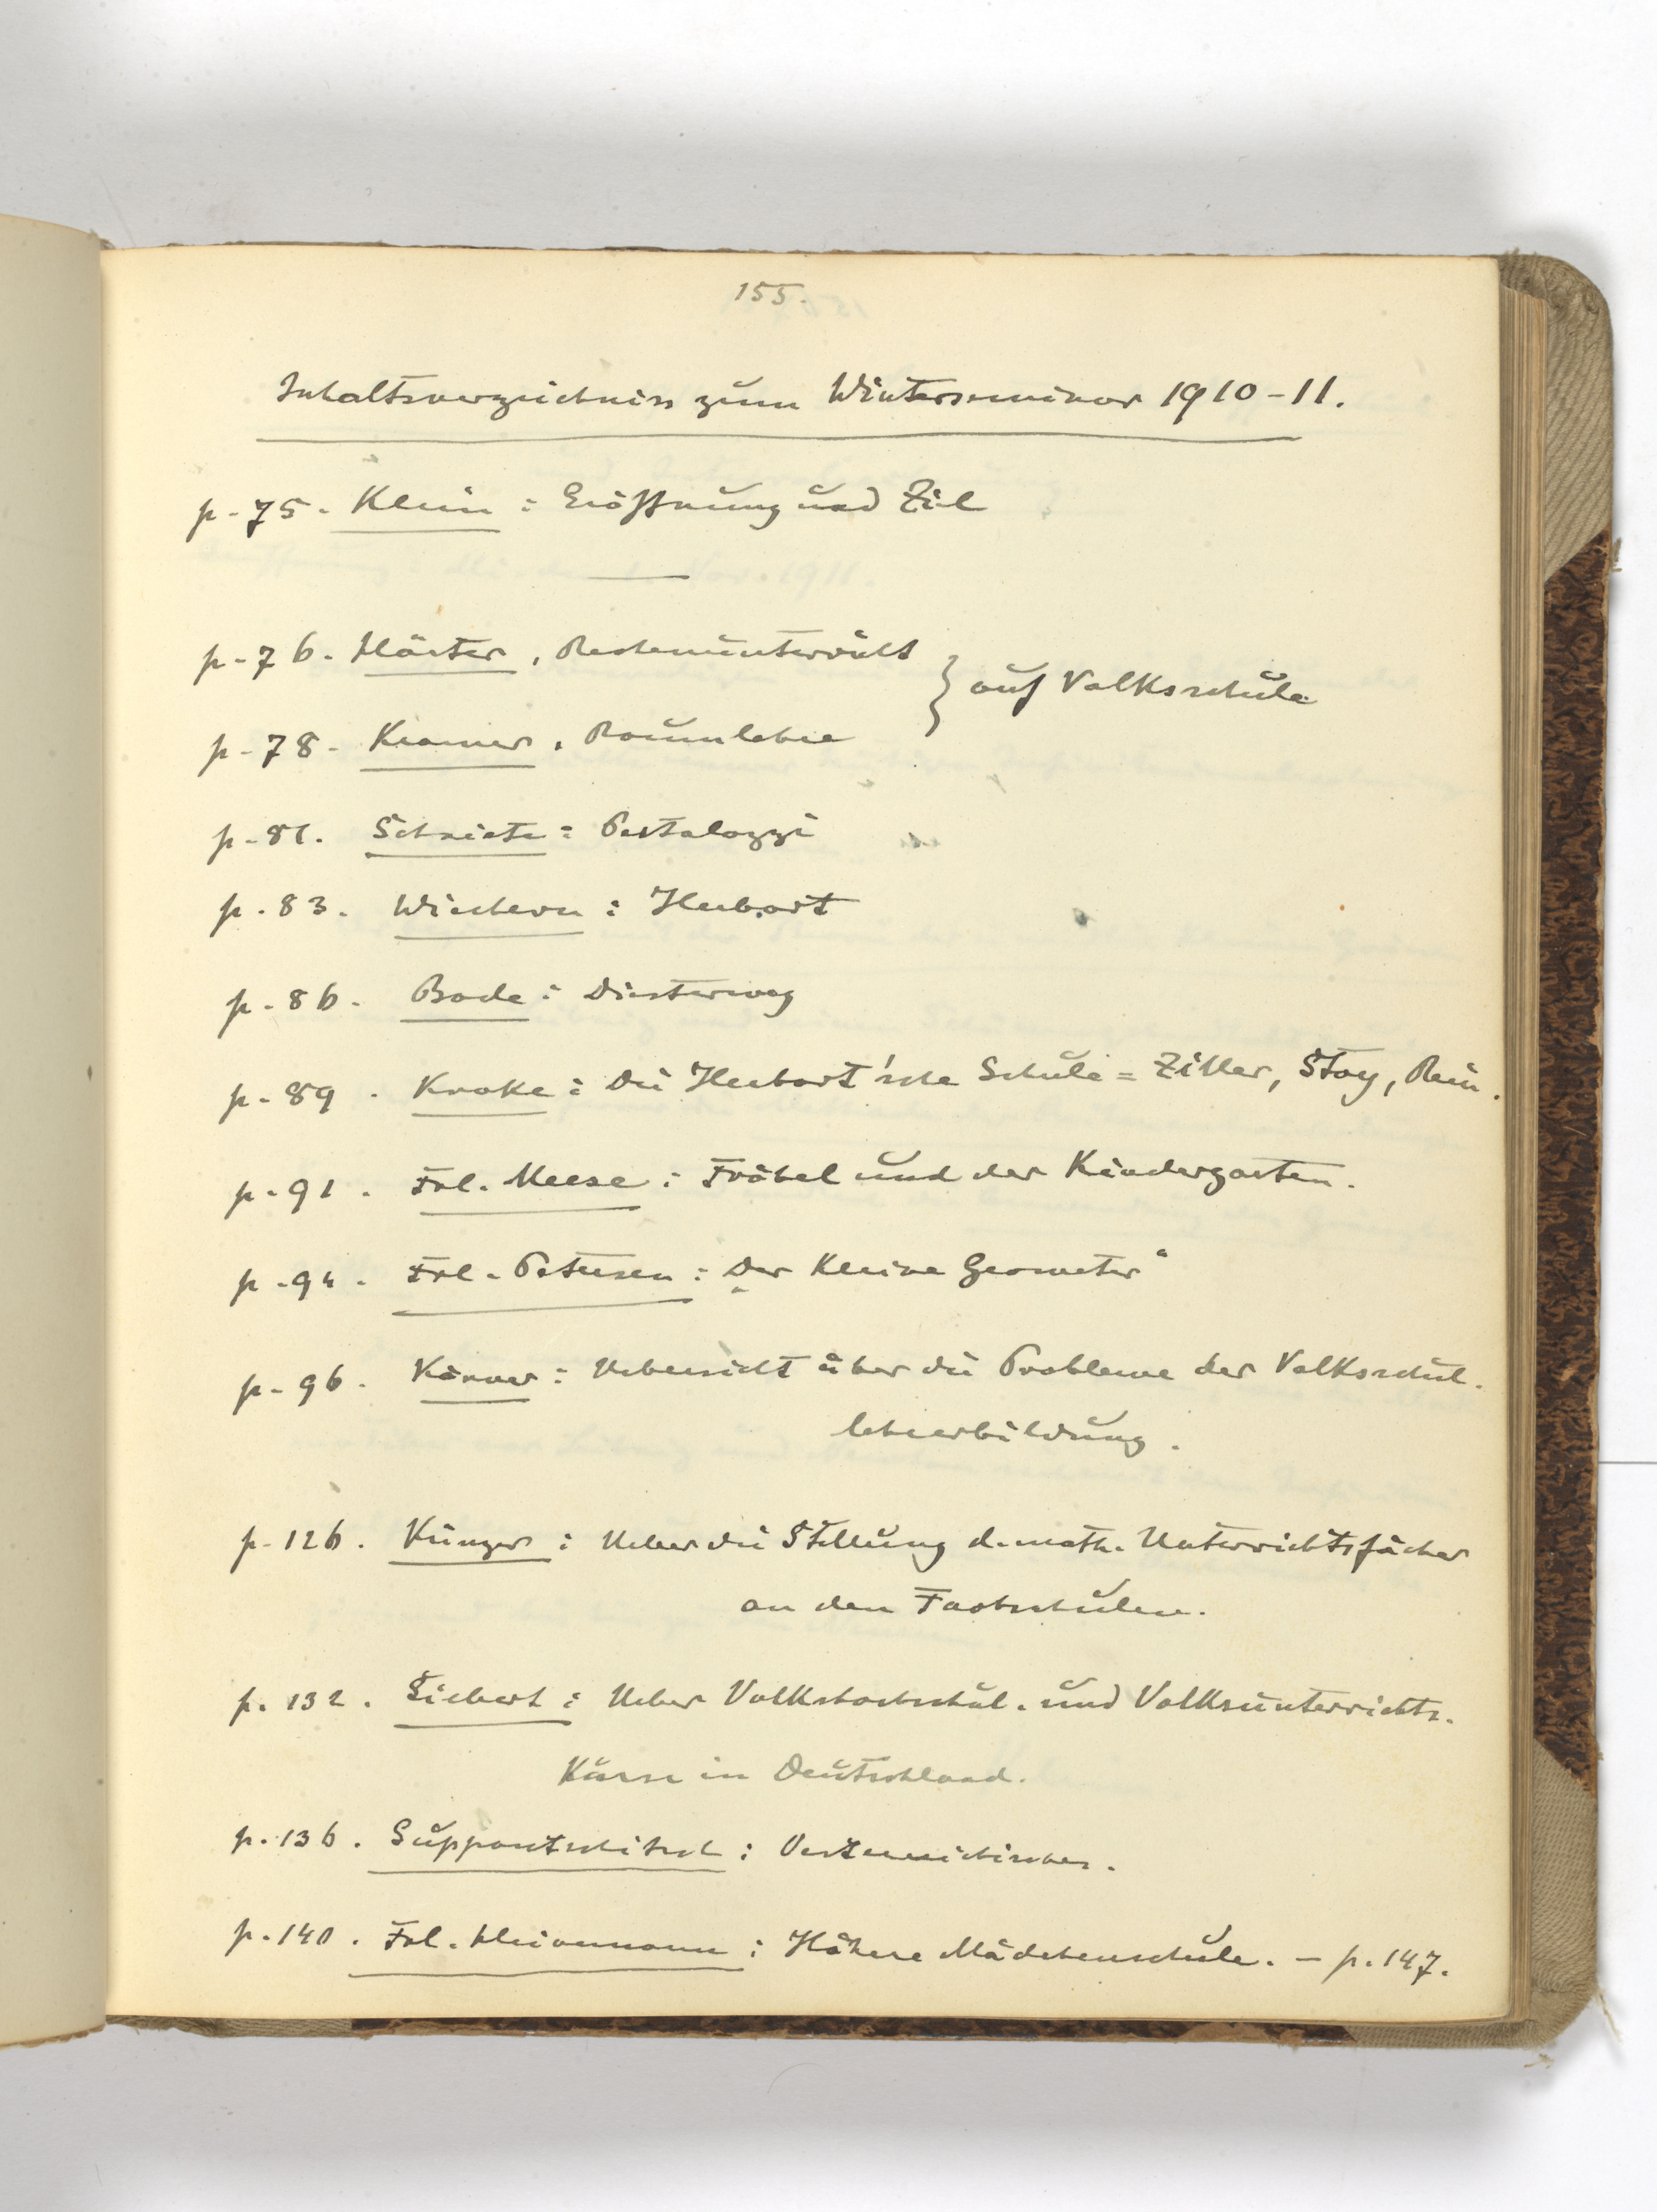 155.
Inhaltsverzeichniss zum Winterseminar 1910-11.
p. 75. Klein: Eröffnung und Ziel
p. 76. Härter, Rechenunterricht
} auf Volksschule
p. 78. Kramer, Raumlehre
p. 81. Schnicte: Pestalozzi
p. 83. Wichern: Herbart
p. 86. Bode: Diesterweg
p. 89. Kroke: Die Herbart'sche Schule = Ziller, Stoy, Rein.
p. 91. Frl. Meese: Fröbel und der Kindergarten.
p. 94. Frl. Petersen: „Der Kleine Geometer“
p. 96. Körner: Uebersicht über die Probleme der Volksschul-
lehrerbildung.
p. 126. Künzer: Ueber die Stellung d. math. Unterrichtsfächer
an den Fachschulen.
p. 132. Siebert: Ueber Volkshochschul- und Volksunterrichts-
Kurse in Deutschland.
p. 136. Suppantschitsch: Oesterreichisches.
p. 140. Frl. Heinemann: Höhere Mädchenschule. – p. 147.